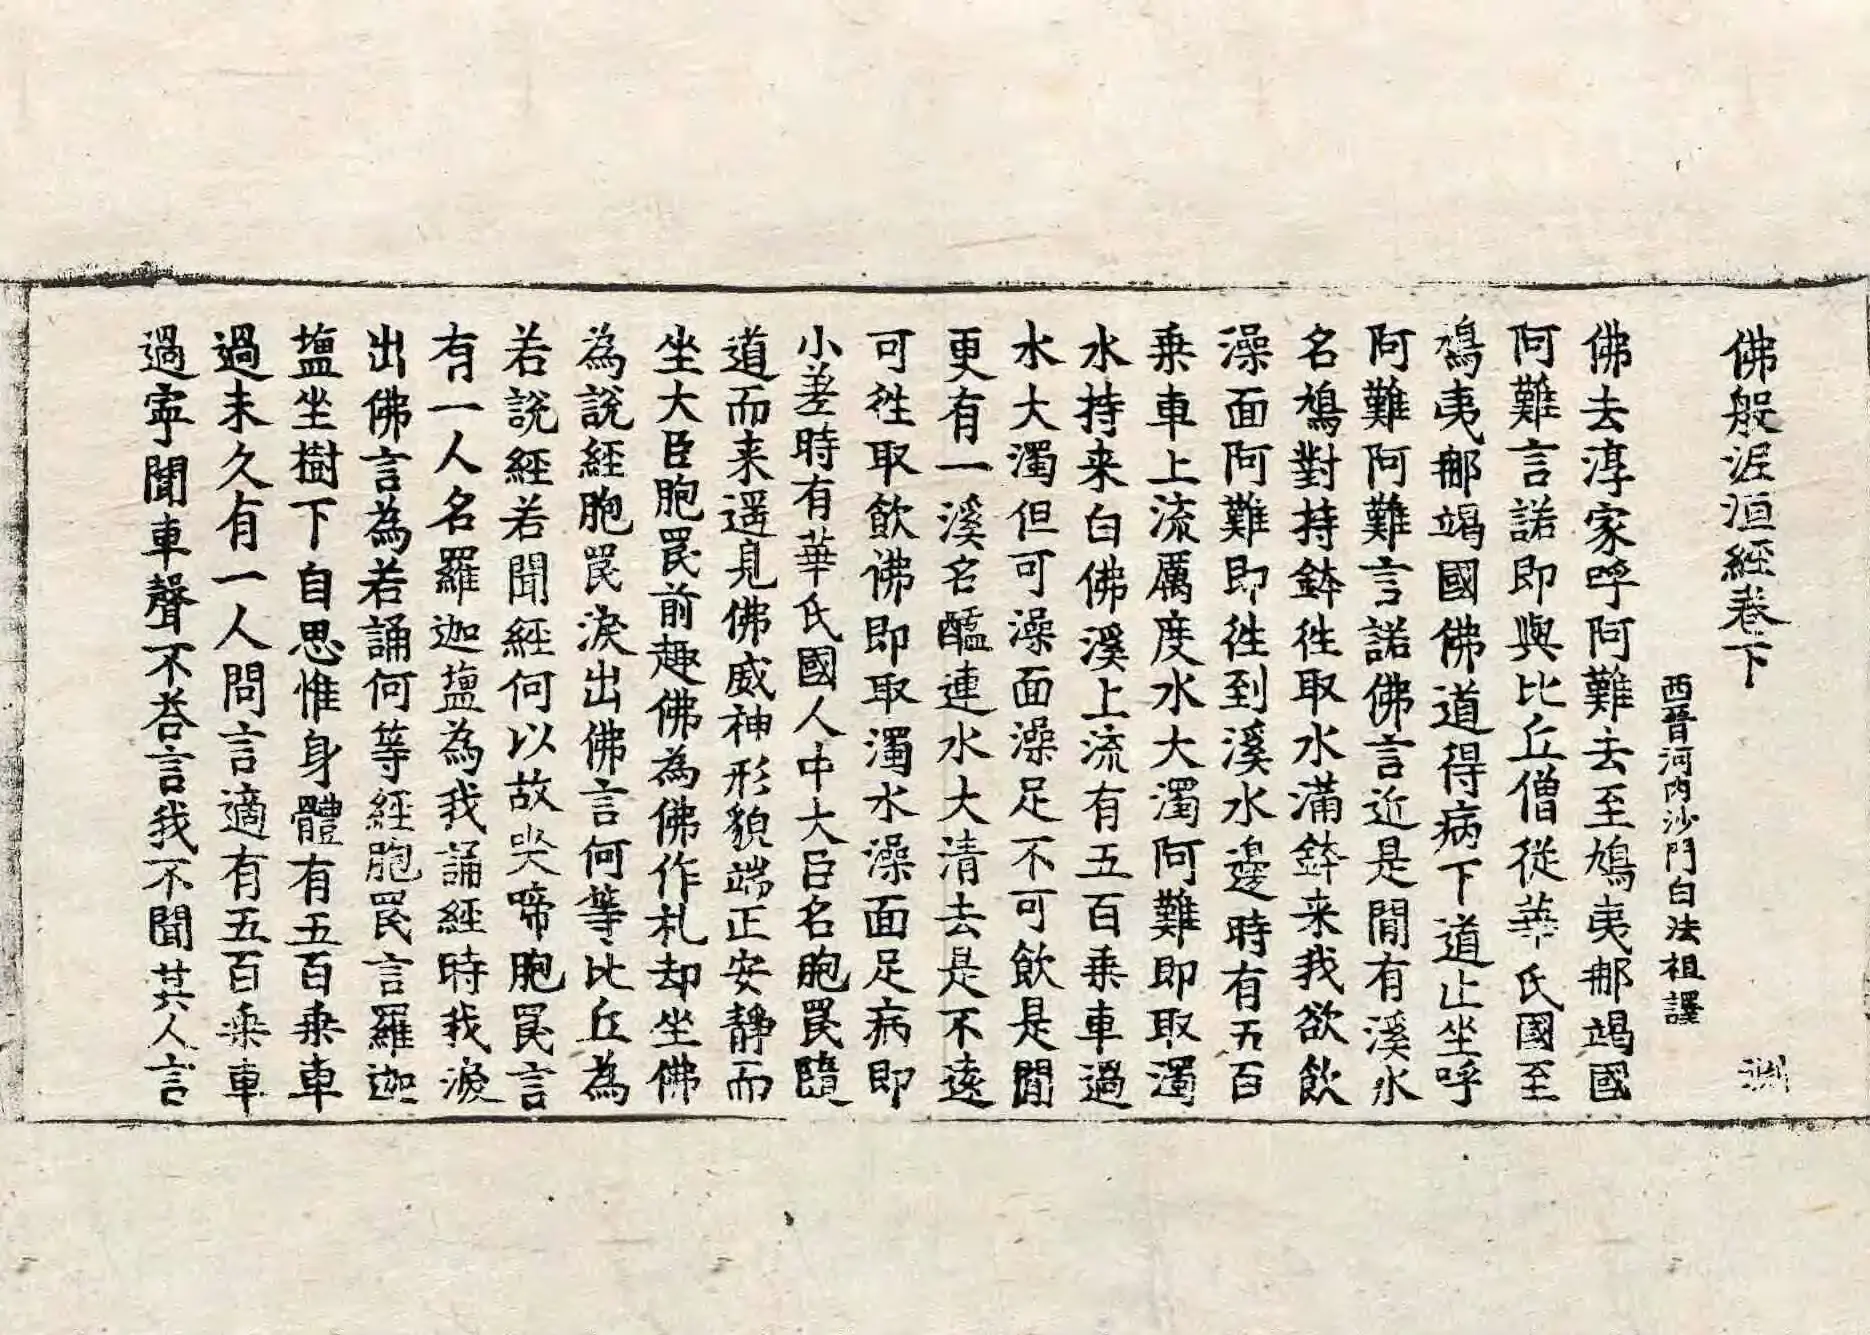 佛般泥洹經卷下
淵
西晉河内沙門白法祖譯
佛去淳家呼阿難去至鳩夷那竭國
阿難言諾即與比丘僧從華氏國至
鳩夷那竭國佛道得病下道止坐呼
阿難阿難言諾佛言近是閒有溪水
名鳩對持鉢往取水滿鉢来我欲飲
澡面阿難即往到溪水邊時有五百
乗車上流厲度水大濁阿難即取濁
水持来白佛溪上流有五百乗車過
水大濁但可澡面澡足不可飲是閒
更有一溪名醯連水大清去是不遠
可往取飲佛即取濁水澡面足病即
小差時有華氏國人中大臣名胞罠隨
道而来遥見佛威神形貌端正安靜而
坐大臣胞罠前趣佛為佛作礼却坐佛
為說經胞罠淚出佛言何等比丘為
若說經若聞經何以故哭啼胞罠言
有一人名羅迦塩為我誦經時我淚
出佛言為若誦何等經胞罠言羅迦
塩坐樹下自思惟身體有五百乗車
過未久有一人問言適有五百乗車
過寧聞車聲不荅言我不聞其人言